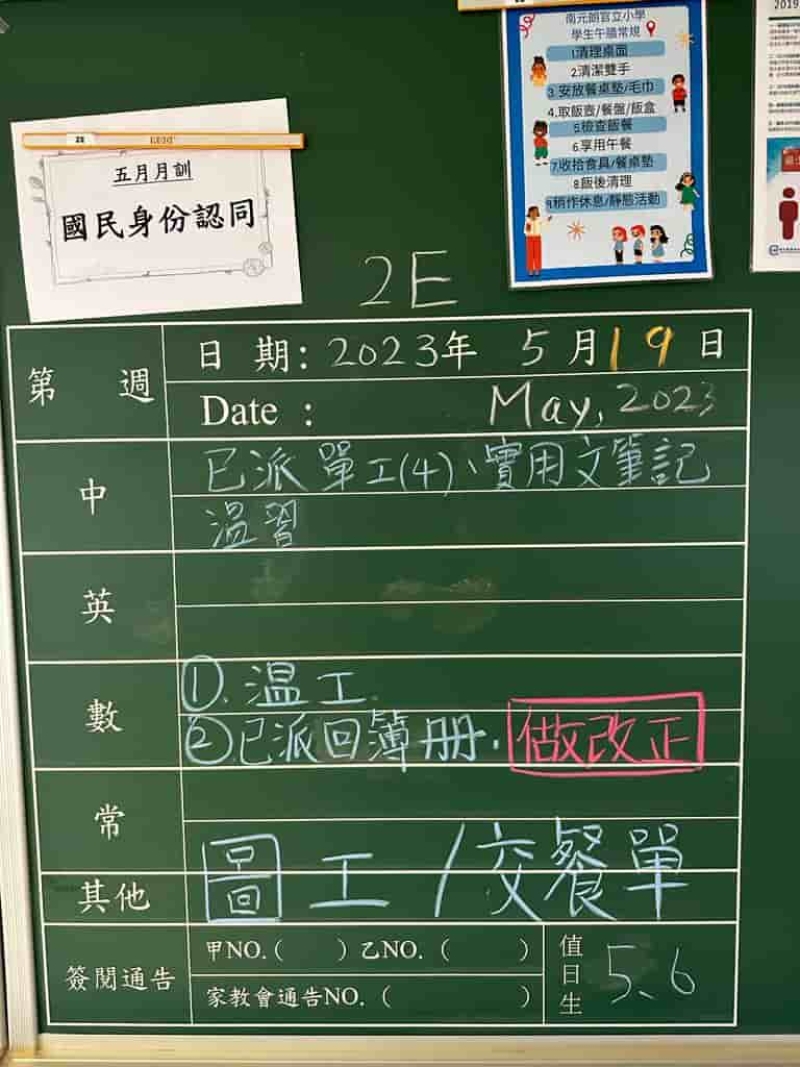 五月月訓
國民身份認同
南元朗官立小學
學生午膳常規
1.清理桌面
2.清潔雙手
3.安放餐桌墊/毛巾
4.取飯壺/餐盤/飯盒
5.檢查飯餐
6.享用午餐
7.收拾食具/餐桌墊
8.飯後清理
9.稍作休息/靜態活動
2019
2E
第 週
日 期: 2023年 5月19日
Date : May, 2023
中
已派單工(4)、實用文筆記
溫習
英
數
①. 温工.
②已派回簿冊. 做改正
常
其他
圖工/交餐單
簽閱通告
甲NO.( ) 乙NO. ( )
家教會通告NO. ( )
值日生
5、6